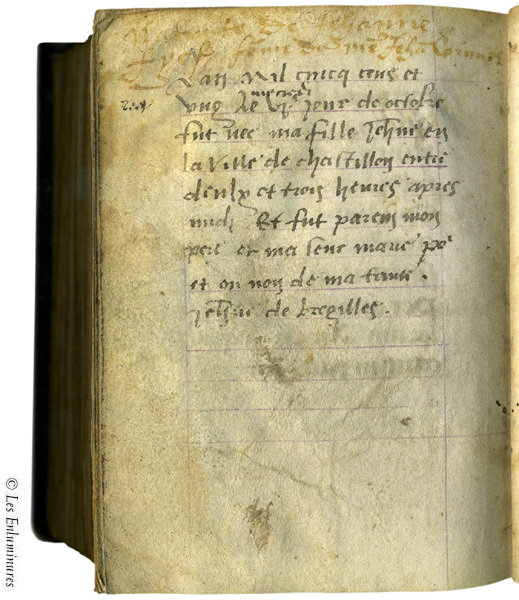 De Jehanne
Lan Mil cincq cens et
ung le mercredi vie jour de octobre
fut nee ma fille Jehanne en
la ville de chastillon entre
deulx et trois heures apres
midi Et fut parein mon
pere et ma seur marie po
et on non de ma tante
Jehanne de bregilles.
© Les Enluminures